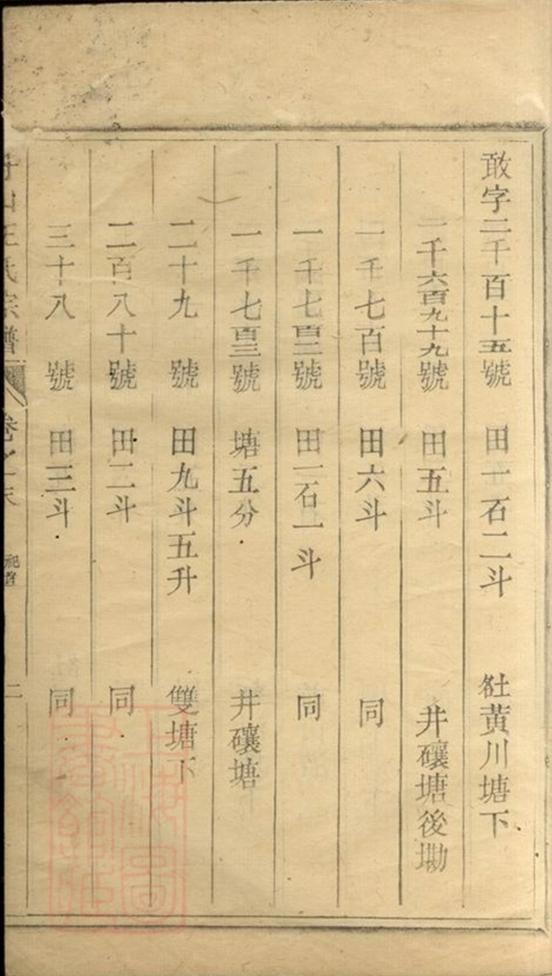 敢字二千百十五號 田一石二斗 𡉈黄川塘下
一千六百九十九號 田五斗 井磉塘後墈
一千七百號 田六斗 同
一千七百二號 田一石一斗 同
一千七百三號 塘五分 井磉塘
二十九號 田九斗五升 雙塘下
二百八十號 田二斗 同
三十八號 田三斗 同
王氏宗譜 卷之末 二